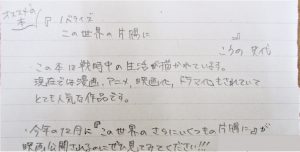 オススメの
本
『ノベライズ
この世界の片隅に
』
こうの 史代
・この本は戦時中の生活が描かれています。
現在では漫画、アニメ、映画化、ドラマ化もされていて
とても人気な作品です。
・今年の12月に『この世界のさらにいくつもの片隅に』が
映画公開されるのにぜひ見てみてください!!!